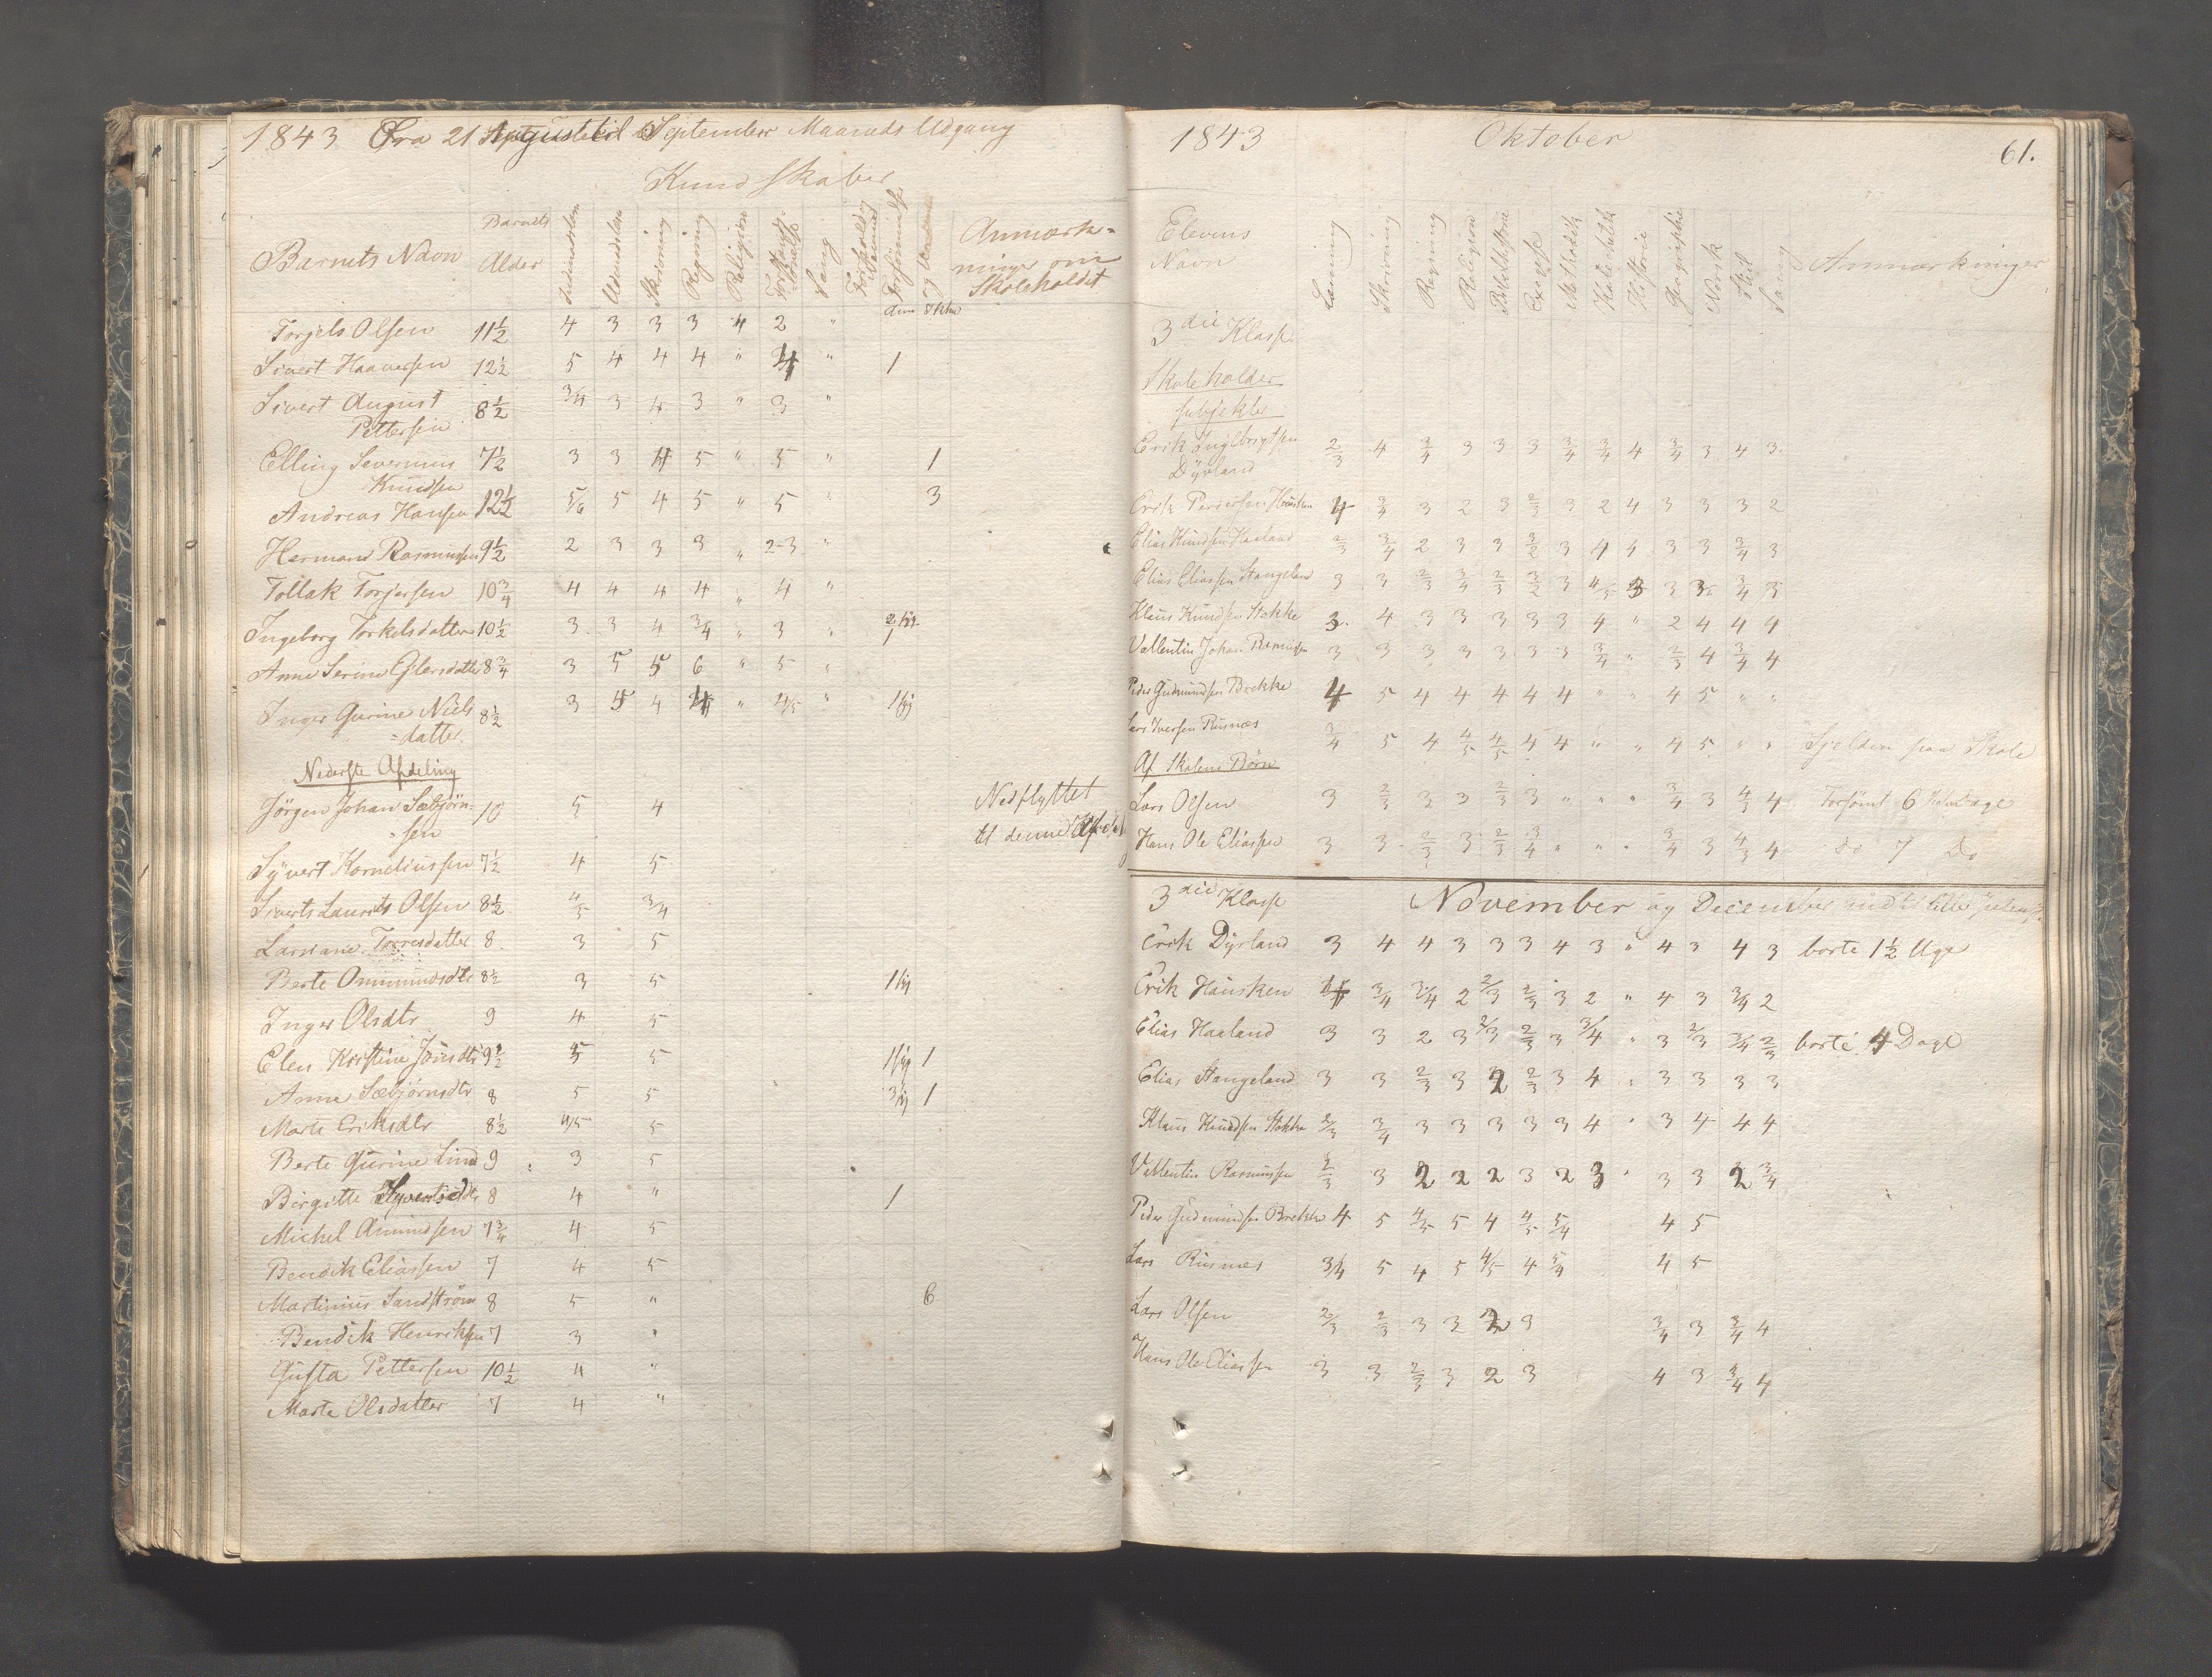 1843 Fra 21 August til September Maaneds Udgang
Kundskaber
Barnets Navn
Barnets Alder
Indenadslæsn
Udenadslæsn
Skrivning
Regning
Religion
Forstands-
øvelse
Sang
Forholdig
Forsømmelse
Anmærk-
ninger om
Skoleholdet
Torjels Olsen 11½ 4 3 3 3 4 2 "
Sivert Haaversen 12½ 5 4 4 4 " 4 " 1
Sivert August
Pettersen 8½ 3/4 3 4 3 " 3 "
Elling Severinus
Knudsen 7½ 3 3 4 5 " 5 " 1
Andreas Hansen 12½ 5/6 5 4 5 " 5 " 3
Hermand Rasmussen 9½ 2 3 3 3 " 2-3 "
Tollak Torjersen 10¾ 4 4 4 4 " 4 "
Ingeborg Torkelsdatter 10½ 3 3 4 3/4 " 3 "
Anne Serine Eglersdatter 8¾ 3 5 5 6 " 5 "
Inger Gurine Niels
=datter 8½ 3 5 4 4 " 4/5 "
Nederste Afdeling
Jörgen Johan Sæbjörn=
=sen 10 5 4 Nedflyttet
til denne Afdel
Syvert Korneliussen 7½ 4 5
Siverts Laurits Olsen 8½ 4/5 3/4
Larsiane Torresdatter 8 3 5
Berte Ommundsdtr 8½ 3 5
Inger Olsdtr 9 4 5
Elen Kristine Jonsdtr 9½ 5 5 1
Anne Sæbjörnsdtr 8 5 5 1
Marte Eriksdtr 8½ 4/5 5
Berte Gurine Lind 9 3 5
Birgitte Syvertsdtr 8 4 " 1
Michel Amundsen 7¾ 4 5
Bendik Eliassen 7 4 5
Martinius Sandström 8 5 " 6
Bendik Henriksen 7 3 "
Gusta Pettersen 10½ 4 "
Marte Olsdatter 7 4 "
1843 Oktober 61.
Elevens
Navn
Læsning
Skrivning
Regning
Religion
Bibelhistorie
Exegese
Methodik
Katechetik
Historie
Geographie
Norsk
Stil
Sang
Anmærkninger
3die Klasse
Skoleholder
subjekter
Erik Inglbrigtsen
Dyrland 2/3 4 3/4 3 3 3 3/4 3/4 4 3/4 3 4 3
Erik Pedersen Hausken 4 3/4 3 2 3 2/3 3 2 4 3 3 3 2
Elias Knudsen Haaland 2/3 3/4 2 3 3 3/2 3 4 4 3 3 3/4 3
Elias Eliassen Stangeland 3 3 2/3 3/4 2/3 3/2 3 4/5 3 3 3 3/4 3
Klaus Knudsen Stokke 3 4 3 3 3 3 3 4 " 2 4 4 4
Vallentin Johan Rasmussen 3 3 3 3 3 3 3 3/4 " 2/3 4 3/4 4
Peder Gudmundsen Brekke 4 5 4 4 4 4 4 " " 4 5 " "
Lars Iversen Rusnæs 3/4 5 4 4/5 4/5 4 4 " " 4 5 " " Sjelden paa Skole
Af Skolens Börn
Lars Olsen 3 2/3 3 3 2/3 3 " " " 3/4 3 4/3 4 Forsömt 6 Halvdage
Hans Ole Eliassen 3 3 2/3 3 2/3 3/4 " " " 3/4 3 4/3 4 do 7 Do
3die Klasse November og December
Erik Dyrland 3 4 4 3 3 3 4 3 " 4 3 4 3 borte 1½ Uge
Erik Hausken 4 3/4 3/4 2 2/3 2/3 3 2 " 4 3 3/4 2
Elias Haaland 3 3 2 3 2/3 2/3 3 3/4 " 3 2/3 3/4 2/3 borte 4 Dage
Elias Stangeland 3 3 2/3 3 2 2/3 3 4 " 3 3 3 3
Klaus Knudsen Stokke 2/3 3/4 3 3 3 3 3 4 " 3 4 4 4
Vallentin Rasmussen 2/3 3 2 2 2 3 2 3 " 3 3 2 3/4
Peder Gudmundsen Brekke 4 5 4/5 5 4 4/5 5/4 4 5
Lars Rusnæs 3/4 5 4 5 4/5 4 5/4 4 5
Lars Olsen 2/3 2/3 3 3 2 3 3/4 3 3/4 4
Hans Ole Eliassen 3 3 2/3 3 2 3 4 3 3/4 4